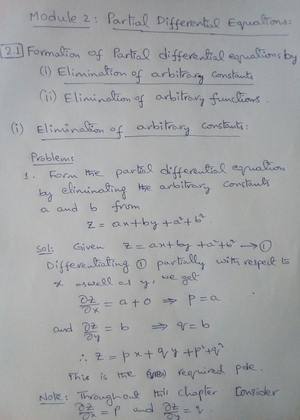 Module 2: Partial Differential Equations:
2.1 Formation of Partial differential equations by
(i) Elimination of arbitrary constants
(ii) Elimination of arbitrary functions.
(i) Elimination of arbitrary constants:
Problems
1. Form the partial differential equation
by eliminating the arbitrary constants
a and b from
z = ax+by+a²+b²
Sol: Given z = ax+by+a²+b² → ①
Differentiating ① partially with respect to
x as well as y, we get
∂z/∂x = a+0 ⇒ p = a
and ∂z/∂y = b ⇒ q = b
∴ z = px+qy+p²+q²
This is the required pde.
Note: Throughout this chapter Consider
∂z/∂x = p and ∂z/∂y = q.